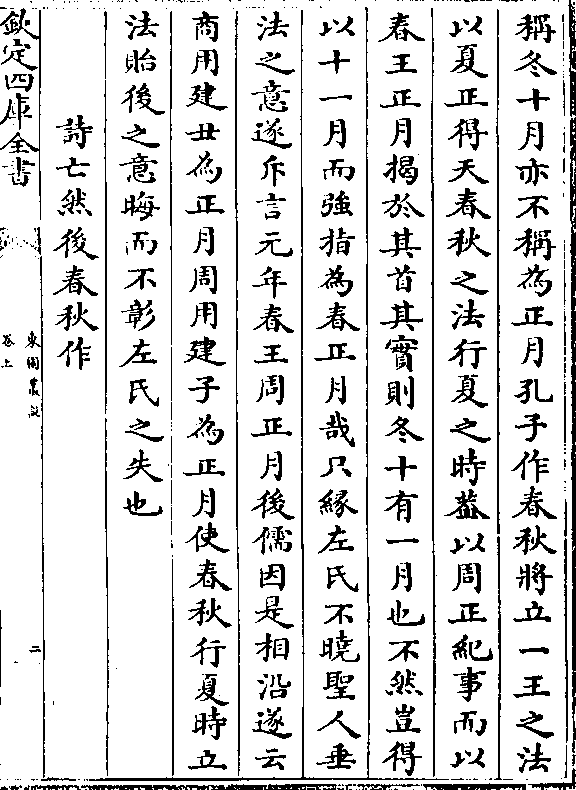 稱冬十月亦不稱為正月孔子作春秋將立一王之法
以夏正得天春秋之法行夏之時葢以周正紀事而以
春王正月揭於其首其實則冬十有一月也不然豈得
以十一月而強指為春正月哉只緣左氏不曉聖人垂
法之意遂斥言元年春王周正月後儒因是相沿遂云
商用建丑為正月周用建子為正月使春秋行夏時立
法貽後之意晦而不彰左氏之失也
詩亡然後春秋作
欽定四庫全書
東園叢說
卷上
二